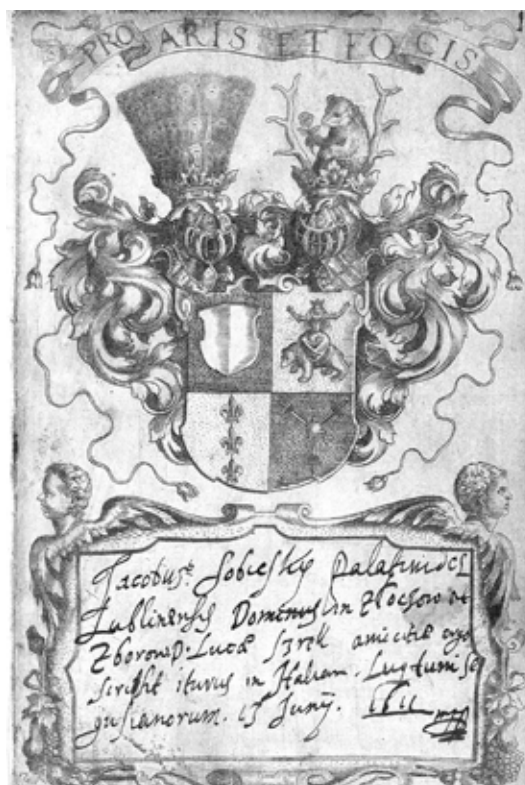 PRO ARIS ET FOCIS
1
Jacobus Sobiesky Palatinides
Lublinensis Dominus in Zloczow et
Zborow D. Lucæ amicitiæ ergo
scripsit iturus in Italiam. Lugduni Se
gusianorum. 15 Junij. 1611